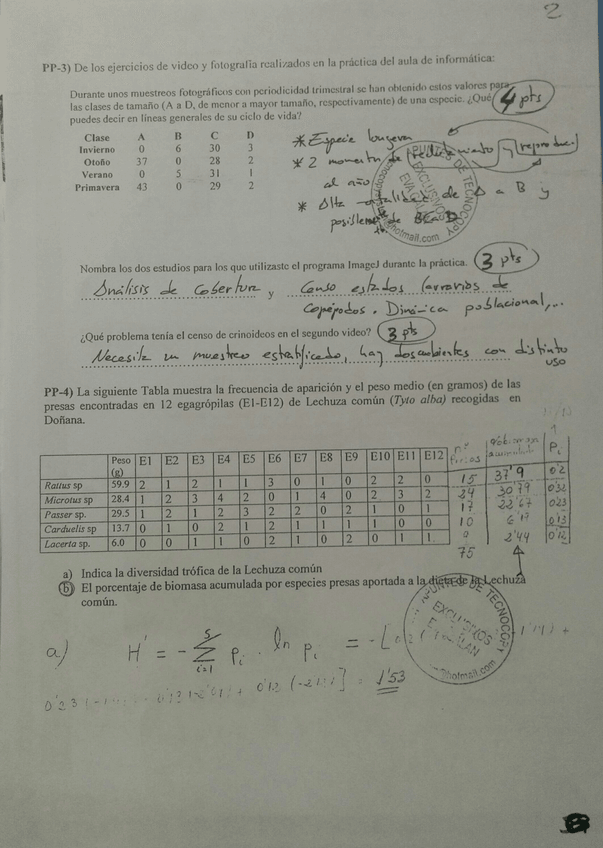 2
PP-3) De los ejercicios de video y fotografía realizados en la práctica del aula de informática:
Durante unos muestreos fotográficos con periodicidad trimestral se han obtenido estos valores para
las clases de tamaño (A a D, de menor a mayor tamaño, respectivamente) de una especie. ¿Qué
puedes decir en líneas generales de su ciclo de vida?
4 pts
Clase A B C D
Invierno 0 6 30 3
Otoño 37 0 28 2
Verano 0 5 31 1
Primavera 43 0 29 2
* Especie longeva
* 2 momentos de reclutamiento y reproducc.
al año
* Alta mortalidad de A a B y
posiblemente de B a D
APUNTES DE TECNOCOPY
EXCLUSIVOS
@hotmail.com
Nombra los dos estudios para los que utilizaste el programa ImageJ durante la práctica.
3 pts
Análisis de Cobertura y Censo estados larvarios de
Copépodos. Dinámica poblacional,...
¿Qué problema tenía el censo de crinoideos en el segundo video?
3 pts
Necesita un muestreo estratificado, hay dos ambientes con distinto
uso
PP-4) La siguiente Tabla muestra la frecuencia de aparición y el peso medio (en gramos) de las
presas encontradas en 12 egagrópilas (E1-E12) de Lechuza común (Tyto alba) recogidas en
Doñana.
Peso (g) E1 E2 E3 E4 E5 E6 E7 E8 E9 E10 E11 E12 nº presas Pi
Rattus sp 59.9 2 1 2 1 1 3 0 1 0 2 2 0 15 37'9 0'2
Microtus sp 28.4 1 2 3 4 2 0 1 4 0 2 3 2 24 30'79 0'32
Passer sp. 29.5 1 2 1 2 3 2 2 0 2 1 0 1 17 22'67 0'23
Carduelis sp 13.7 0 1 0 2 1 2 1 1 1 1 0 0 10 6'19 0'13
Lacerta sp. 6.0 0 0 1 1 0 2 1 0 2 0 1 1 9 2'44 0'12
75
a) Indica la diversidad trófica de la Lechuza común
b) El porcentaje de biomasa acumulada por especies presas aportada a la dieta de la Lechuza
común.
APUNTES DE TECNOCOPY
EXCLUSIVOS
@hotmail.com
a) H' = - Σ pi . ln pi = -[0'2
0'23 0'12 (-2'1)] = 1'53